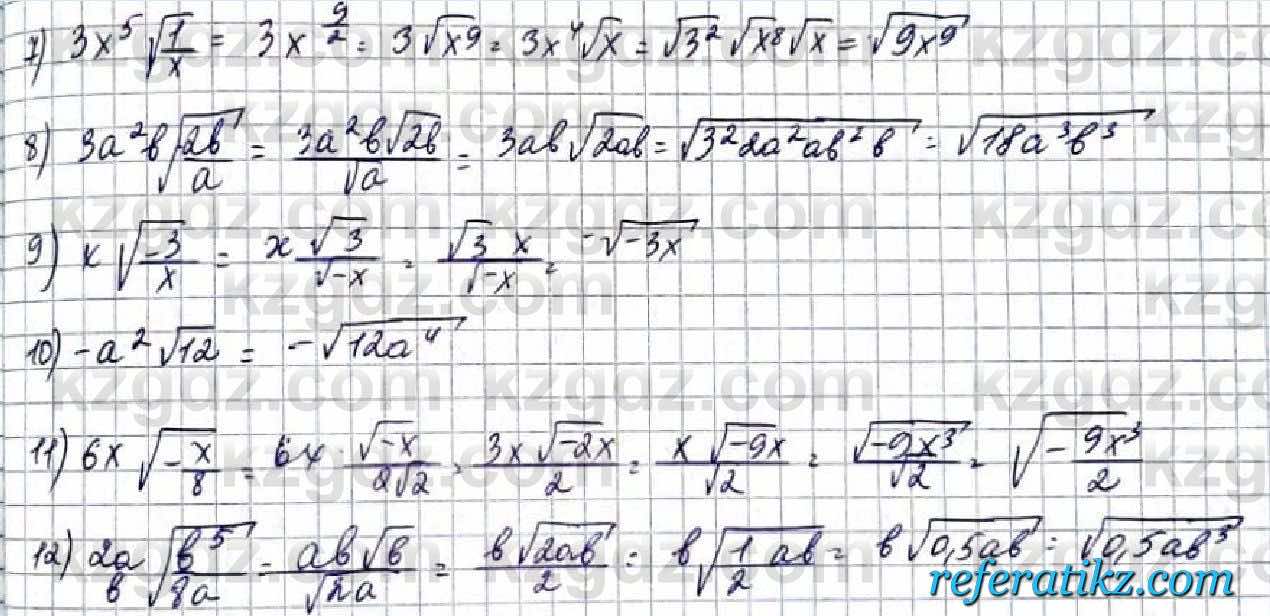 7) 3x⁵√(1/x) = 3x^(9/2) = 3√x⁹ = 3x⁴√x = √3²√x⁸√x = √(9x⁹)
8) 3a²b√(2b/a) = 3a²b√(2b)/√a = 3ab√(2ab) = √(3²2a²ab²b) = √(18a³b³)
9) x√(-3/x) = x√3/√-x = √3 x/√-x = -√(-3x)
10) -a²√12 = -√(12a⁴)
11) 6x√(-x/8) = 6x · √-x/2√2 = 3x√(-2x)/2 = x√(-9x)/√2 = √(-9x³)/√2 = √(-9x³/2)
12) 2a/b √(b⁵/8a) = ab√b/√2a = b√(2ab)/2 = b√(1/2 ab) = b√(0,5ab) = √(0,5ab³)
kzgdz.com
referatikz.com